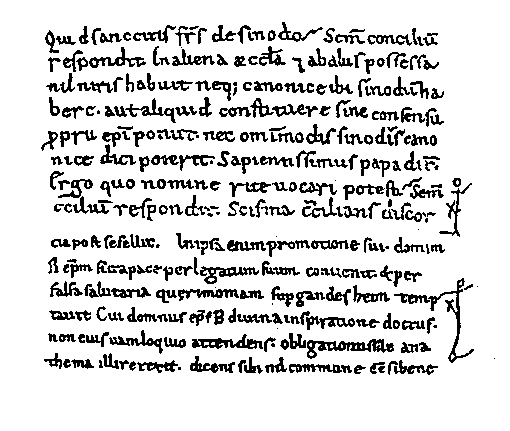 Qui d sanccitis frs de sinodo Scm conciliu
respondit In aliena æccla 7 ab aliis possessa
nil uiris habuit neq; canonice ibi sinodu ha
bere. aut aliquid constituere sine consensu
pprii epi potuit. nec omimodis sinodus cano
nice dici poterit. Sapientissimus papa dix.
Ergo quo nomine rite uocari potest Scm
cciliu respondit. Scisma cciliansdiscor
cia post se sellit. In ipsa enim promotione sui domim
epm ficta pace per legatum suum conuenit & per
falsa salutaria querimoniam
tauit Cui domnus eps B diuina inspiratione doctus.
non eius uaniloquio attendens. obligationis ana
thema illi retexit. dicens sibi nil commune ee sibene